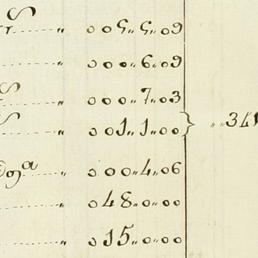 " 005"5"09
" 000"6"09
" 000"7"03
" 011"1"00 } " 341
" 000"4"06
" 048"0"00
" 015"0"00